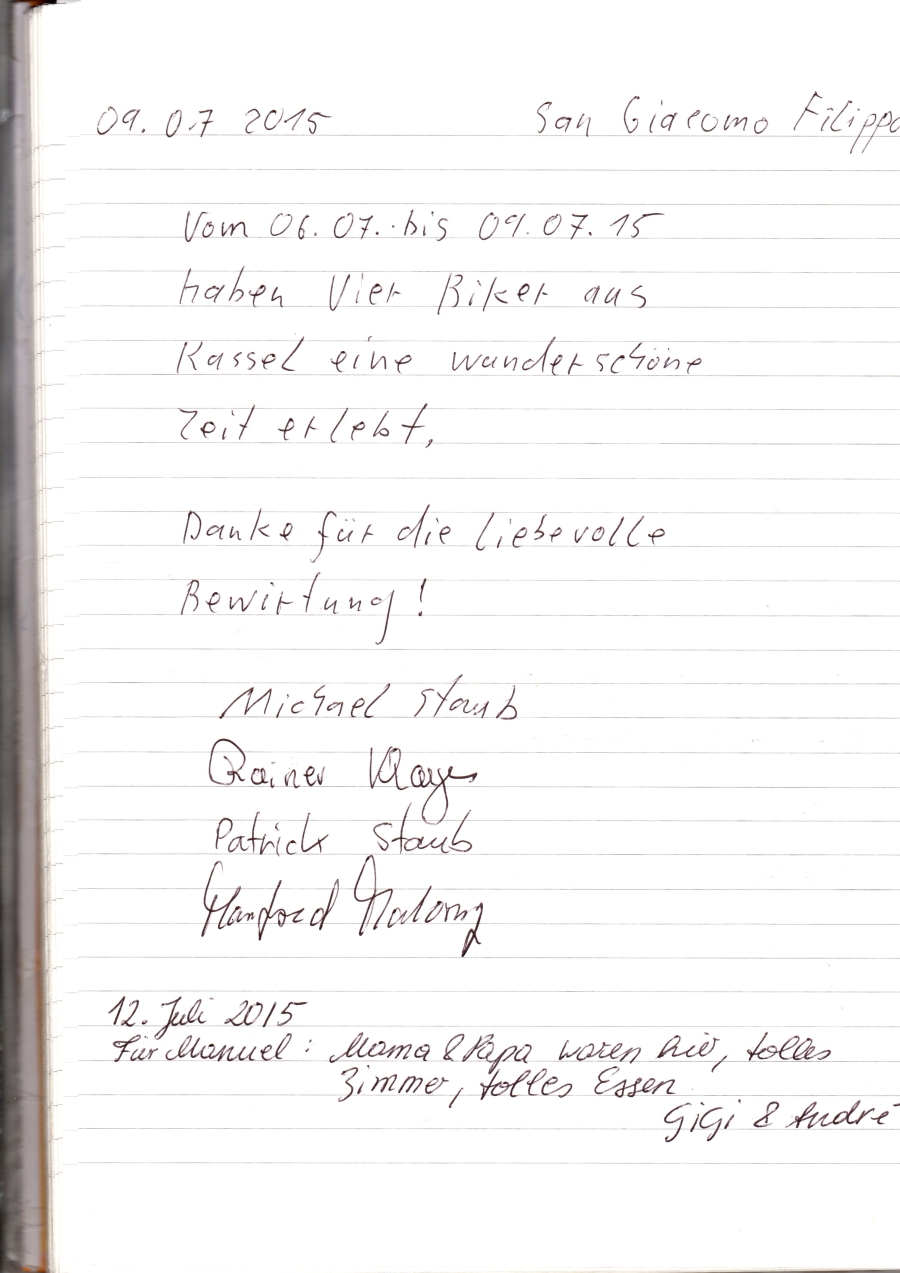 09.07 2015 San Giacomo Filippo
Vom 06.07. bis 09.07.15
haben Vier Biker aus
Kassel eine wunderschöne
Zeit erlebt,
Danke für die liebevolle
Bewirtung!
Michael Staub
Rainer
Patrick Staub
Manfred
12. Juli 2015
Für Manuel: Mama & Papa waren hier, tolles
Zimmer, tolles Essen
GiGi & André